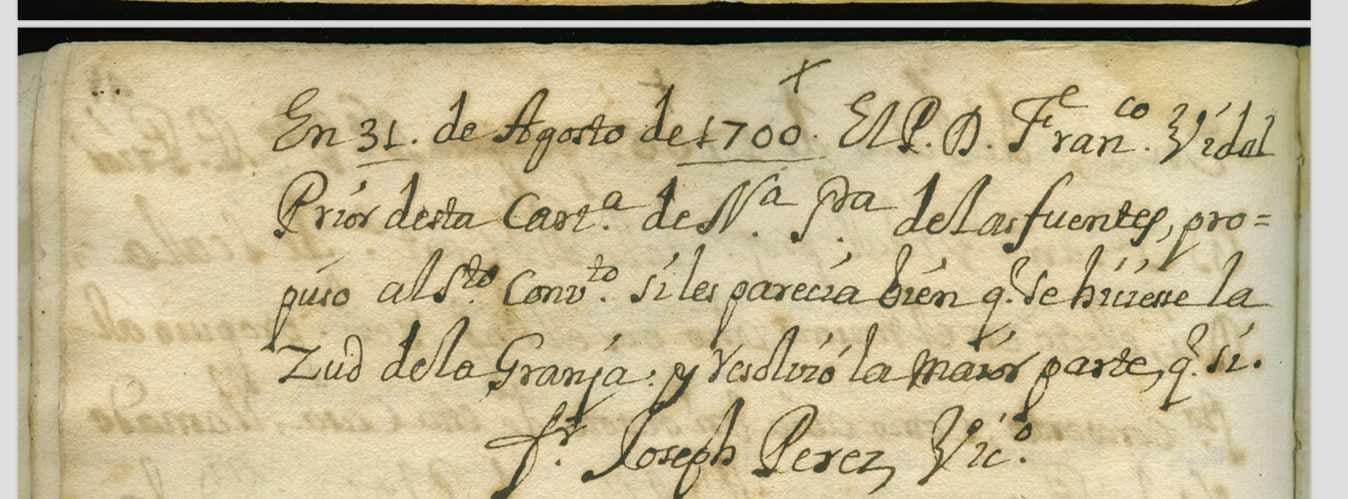 En 31. de Agosto de 1700. El P. D. Franco. Vidal
Prior desta Carta. de Na. Sra. de las fuentes, pro=
puso al Sto. Convto. si les parecia bien q. se hiciesse la
Zud de la Granja: y resolvió la maior parte, q. si.
fr. Joseph Perez, Vico.